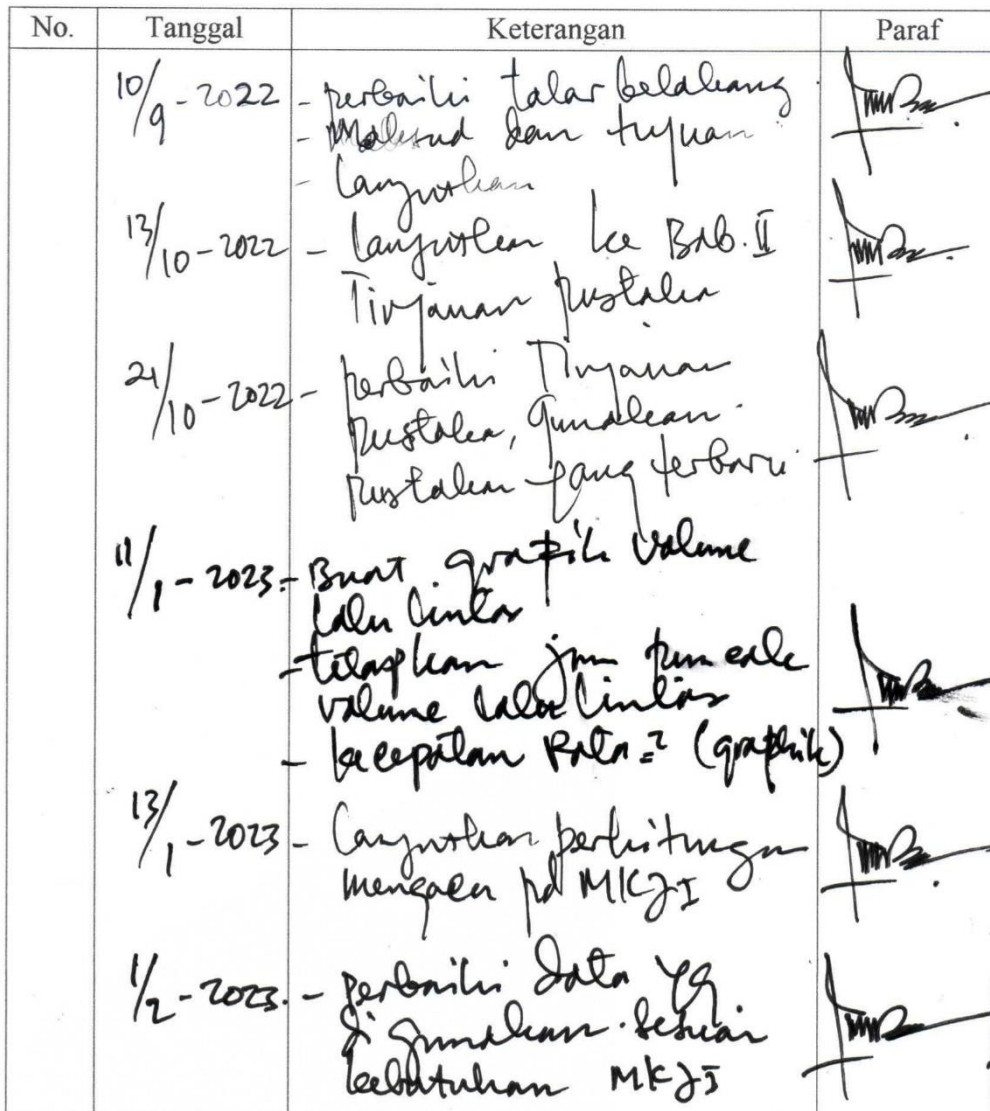 No. Tanggal Keterangan Paraf
10/9-2022 - perbaiki latar belakang
- Maksud dan tujuan
- Lanjutkan
13/10-2022 - Lanjutkan ke Bab. II
Tinjauan pustaka
21/10-2022 - perbaiki Tinjauan
pustaka, gunakan
pustaka yang terbaru
11/1-2023 - Buat grafik volume
lalu lintas
- tetapkan jam puncak
volume lalu lintas
- kecepatan Rata-2 (graphik)
13/1-2023 - Lanjutkan perhitungan
mengacu pd MKJI
1/2-2023 - perbaiki data yg
di gunakan sesuai
kebutuhan MKJI